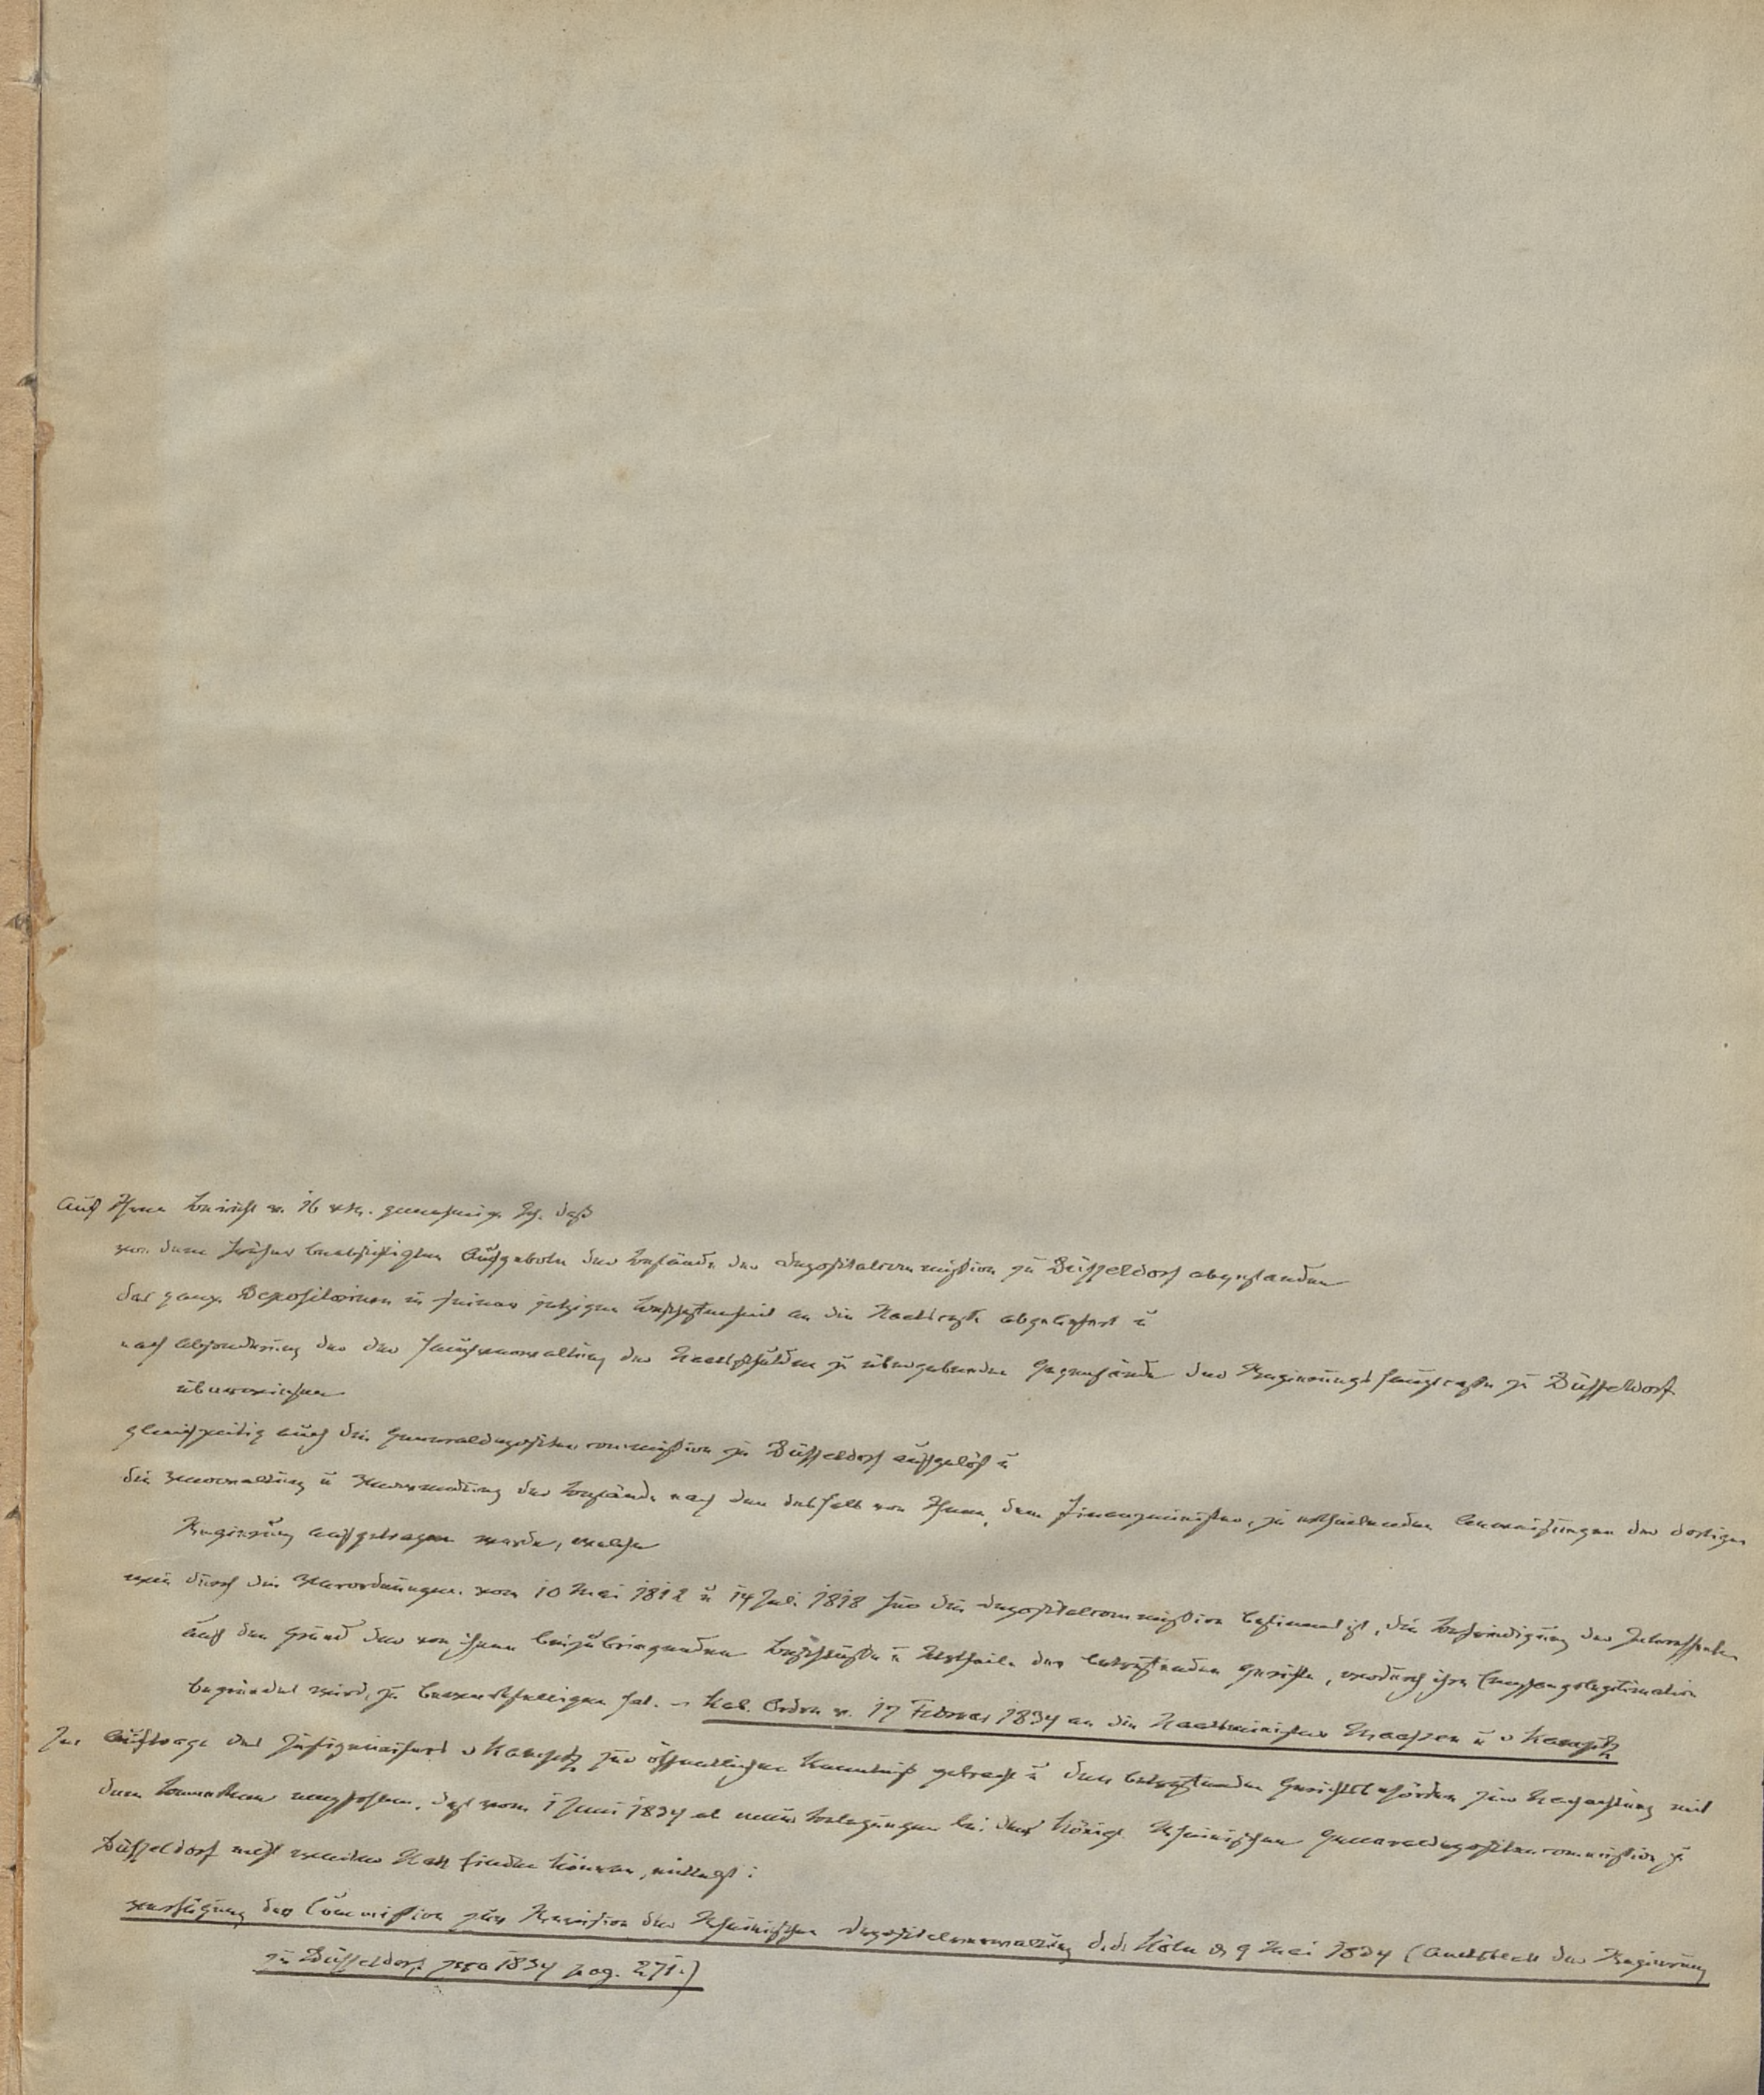 Auf Ihren Bericht v. 16 v. M. genehmige Ich, daß
von dem früher beabsichtigten Aufgebote der Bestände der Depositalcommission zu Düsseldorf abgestanden
das ganze Depositorium in seiner jetzigen Beschaffenheit an die Staatscasse abgeliefert u
nach Absonderung der der Hauptverwaltung der Staatsschulden zu übergebenden Gegenstände der Regierungshauptcasse zu Düsseldorf
überwiesen
gleichzeitig auch die Generaldepositencommission zu Düsseldorf aufgelöst u
die Verwaltung u Verwendung der Bestände nach den deshalb von Ihnen, dem Finanzminister, zu ertheilenden Anweisungen der dortigen
Regierung aufgetragen werde, welche
wie durch die Verordnungen vom 10 Mai 1812 u 14 Juli 1818 für die Depositalcommission bestimmt ist, die Befriedigung der Interessenten
auf den Grund der von ihnen beizubringenden Beschlüsse u Urtheile der betreffenden Gerichte, wodurch ihre Empfangslegitimation
begründet wird, zu bewerkstelligen hat. – Kab. Ordre v. 17 Februar 1834 an die Staatsminister Maassen u v Kamptz
Im Auftrage des Justizministers v Kamptz zur öffentlichen Kenntniß gebracht u den betreffenden Gerichtsbehörden zur Beachtung mit
dem Bemerken empfohlen, daß vom 1 Juni 1834 ab neue Belegungen bei der Königl. Rheinischen Generaldepositencommission zu
Düsseldorf nicht weiter Statt finden können, mittelst:
Verfügung der Commission zur Revision der Rheinischen Depositalverwaltung d.d. Köln d. 9 Mai 1834 (Amtsblatt der Regierung
zu Düsseldorf pro 1834 pag. 271.)